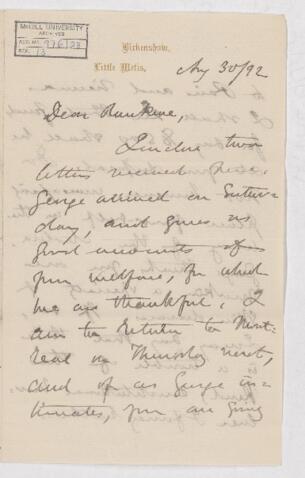 McGILL UNIVERSITY
ARCHIVES
ACC. NO. 976/23
REF. 13
Birkenshaw,
Little Metis.
Aug 30/92
Dear Rankine,
I enclose two
letters received here.
George arrived on Satur-
day, and gives us
good accounts of
your welfare, for which
we are thankful. I
am to return to Mont-
real on Thursday next,
and if as George in-
timates, you are going